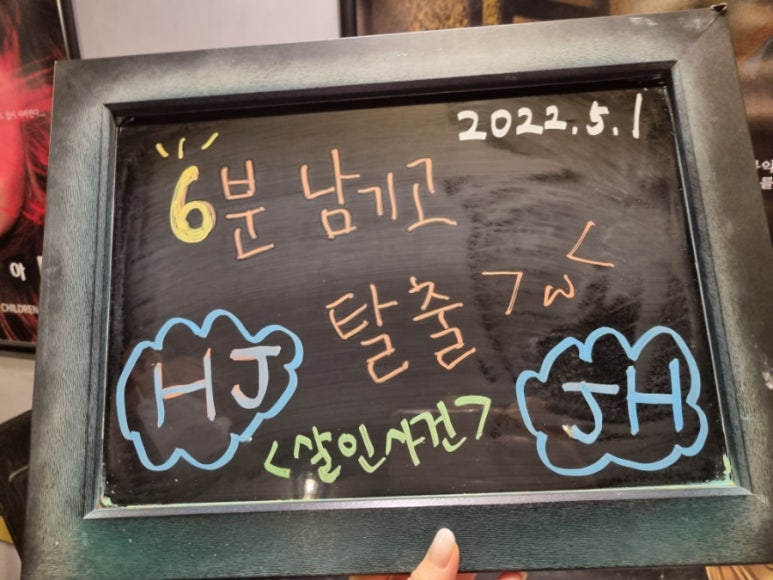 2022.5.1
6분 남기고
탈출 >ω<
HJ
JH
<살인사건>
CHILDREN